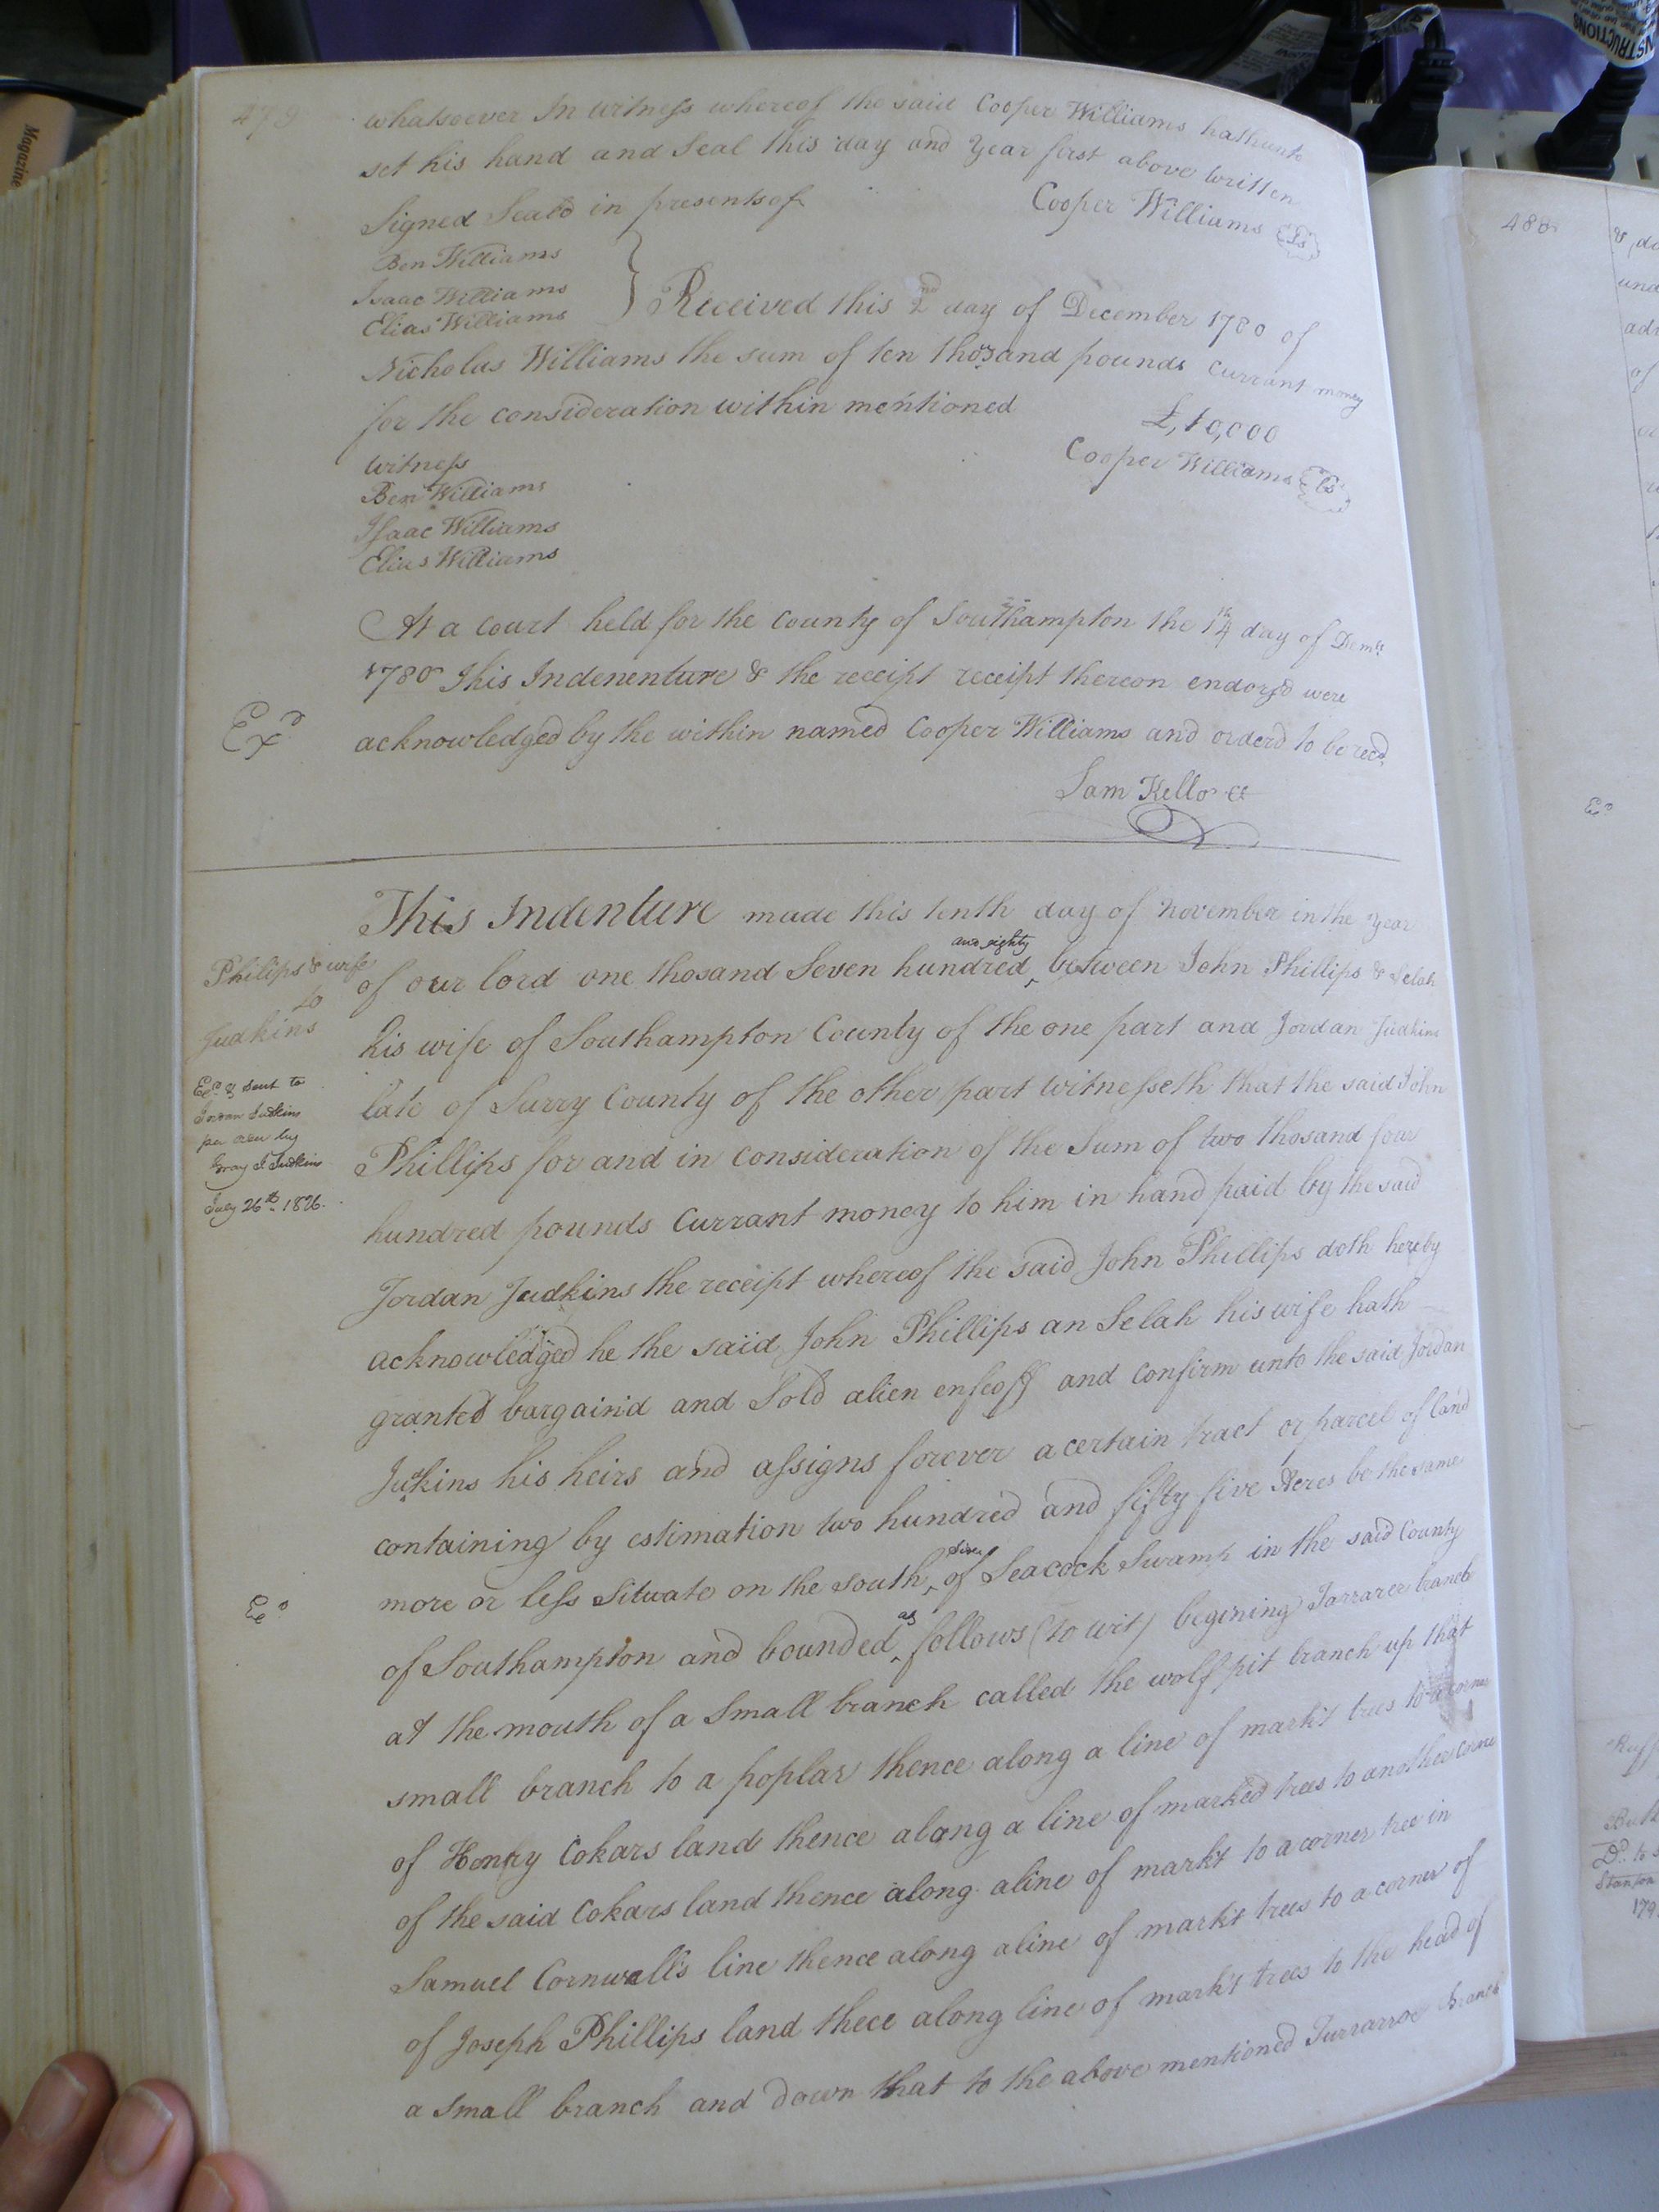 479
whatsoever In witness whereof the said Cooper Williams hathunto
set his hand and Seal this day and year first above written
Signed Seald in presents of
Cooper Williams Ls
Ben Williams
Isaac Williams
Elias Williams
Received this 2nd day of December 1780 of
Nicholas Williams the sum of ten thosand pounds Currant money
for the consideration within mentioned
£,10,000
witness
Cooper Williams Ls
Ben Williams
Isaac Williams
Elias Williams
At a court held for the County of Southampton the 14th day of Demr
1780 This Indenenture & the receipt receipt thereon endorsd were
Exd
acknowledged by the within named Cooper Williams and orderd to be recd
Sam Kello Cl
This Indenture made this tenth day of November in the Year
Philips & wife
to
Judkins
of our lord one thosand Seven hundred and eighty between John Phillips & Selah
his wife of Southampton County of the one part and Jordan Judkins
Exd & sent to
Jordan Judkins
per
Gray J Judkins
July 26th 1826.
late of Surry County of the other part witnesseth that the said John
Phillips for and in consideration of the Sum of two thosand four
hundred pounds Currant money to him in hand paid by the said
Jordan Judkins the receipt whereof the said John Phillips doth hereby
acknowledged he the said John Phillips an Selah his wife hath
granted bargain'd and Sold alien enfeoff and confirm unto the said Jordan
Judkins his heirs and assigns forever a certain tract or parcel of land
containing by estimation two hundred and fifty five Acres be the same
more or less Situate on the south side of Seacock Swamp in the said County
of Southampton and bounded as follows (to wit) begining Tarrarer branch
at the mouth of a Small branch called the wolf pit branch up that
small branch to a poplar thence along a line of mark't trees to a corner
of Henry Cokars land thence along a line of marked trees to another corner
of the said Cokars land thence along aline of mark't to a corner tree in
Samuel Cornwell's line thence along aline of mark't trees to a corner of
of Joseph Phillips land thece along line of mark't trees to the head of
a small branch and down that to the above mentioned Turrarroe branch
480
Magazine
INSTRUCTIONS